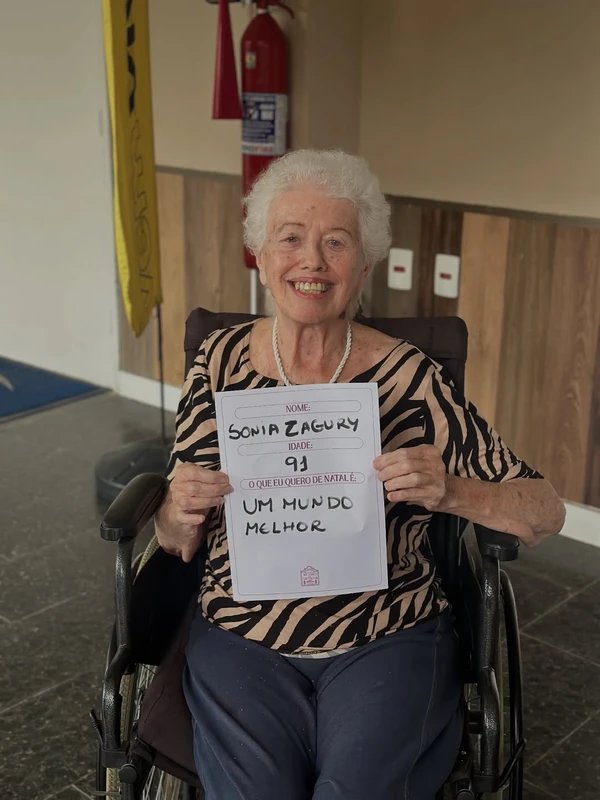 NOME:
SONIA ZAGURY
IDADE:
91
O QUE EU QUERO DE NATAL É:
UM MUNDO
MELHOR